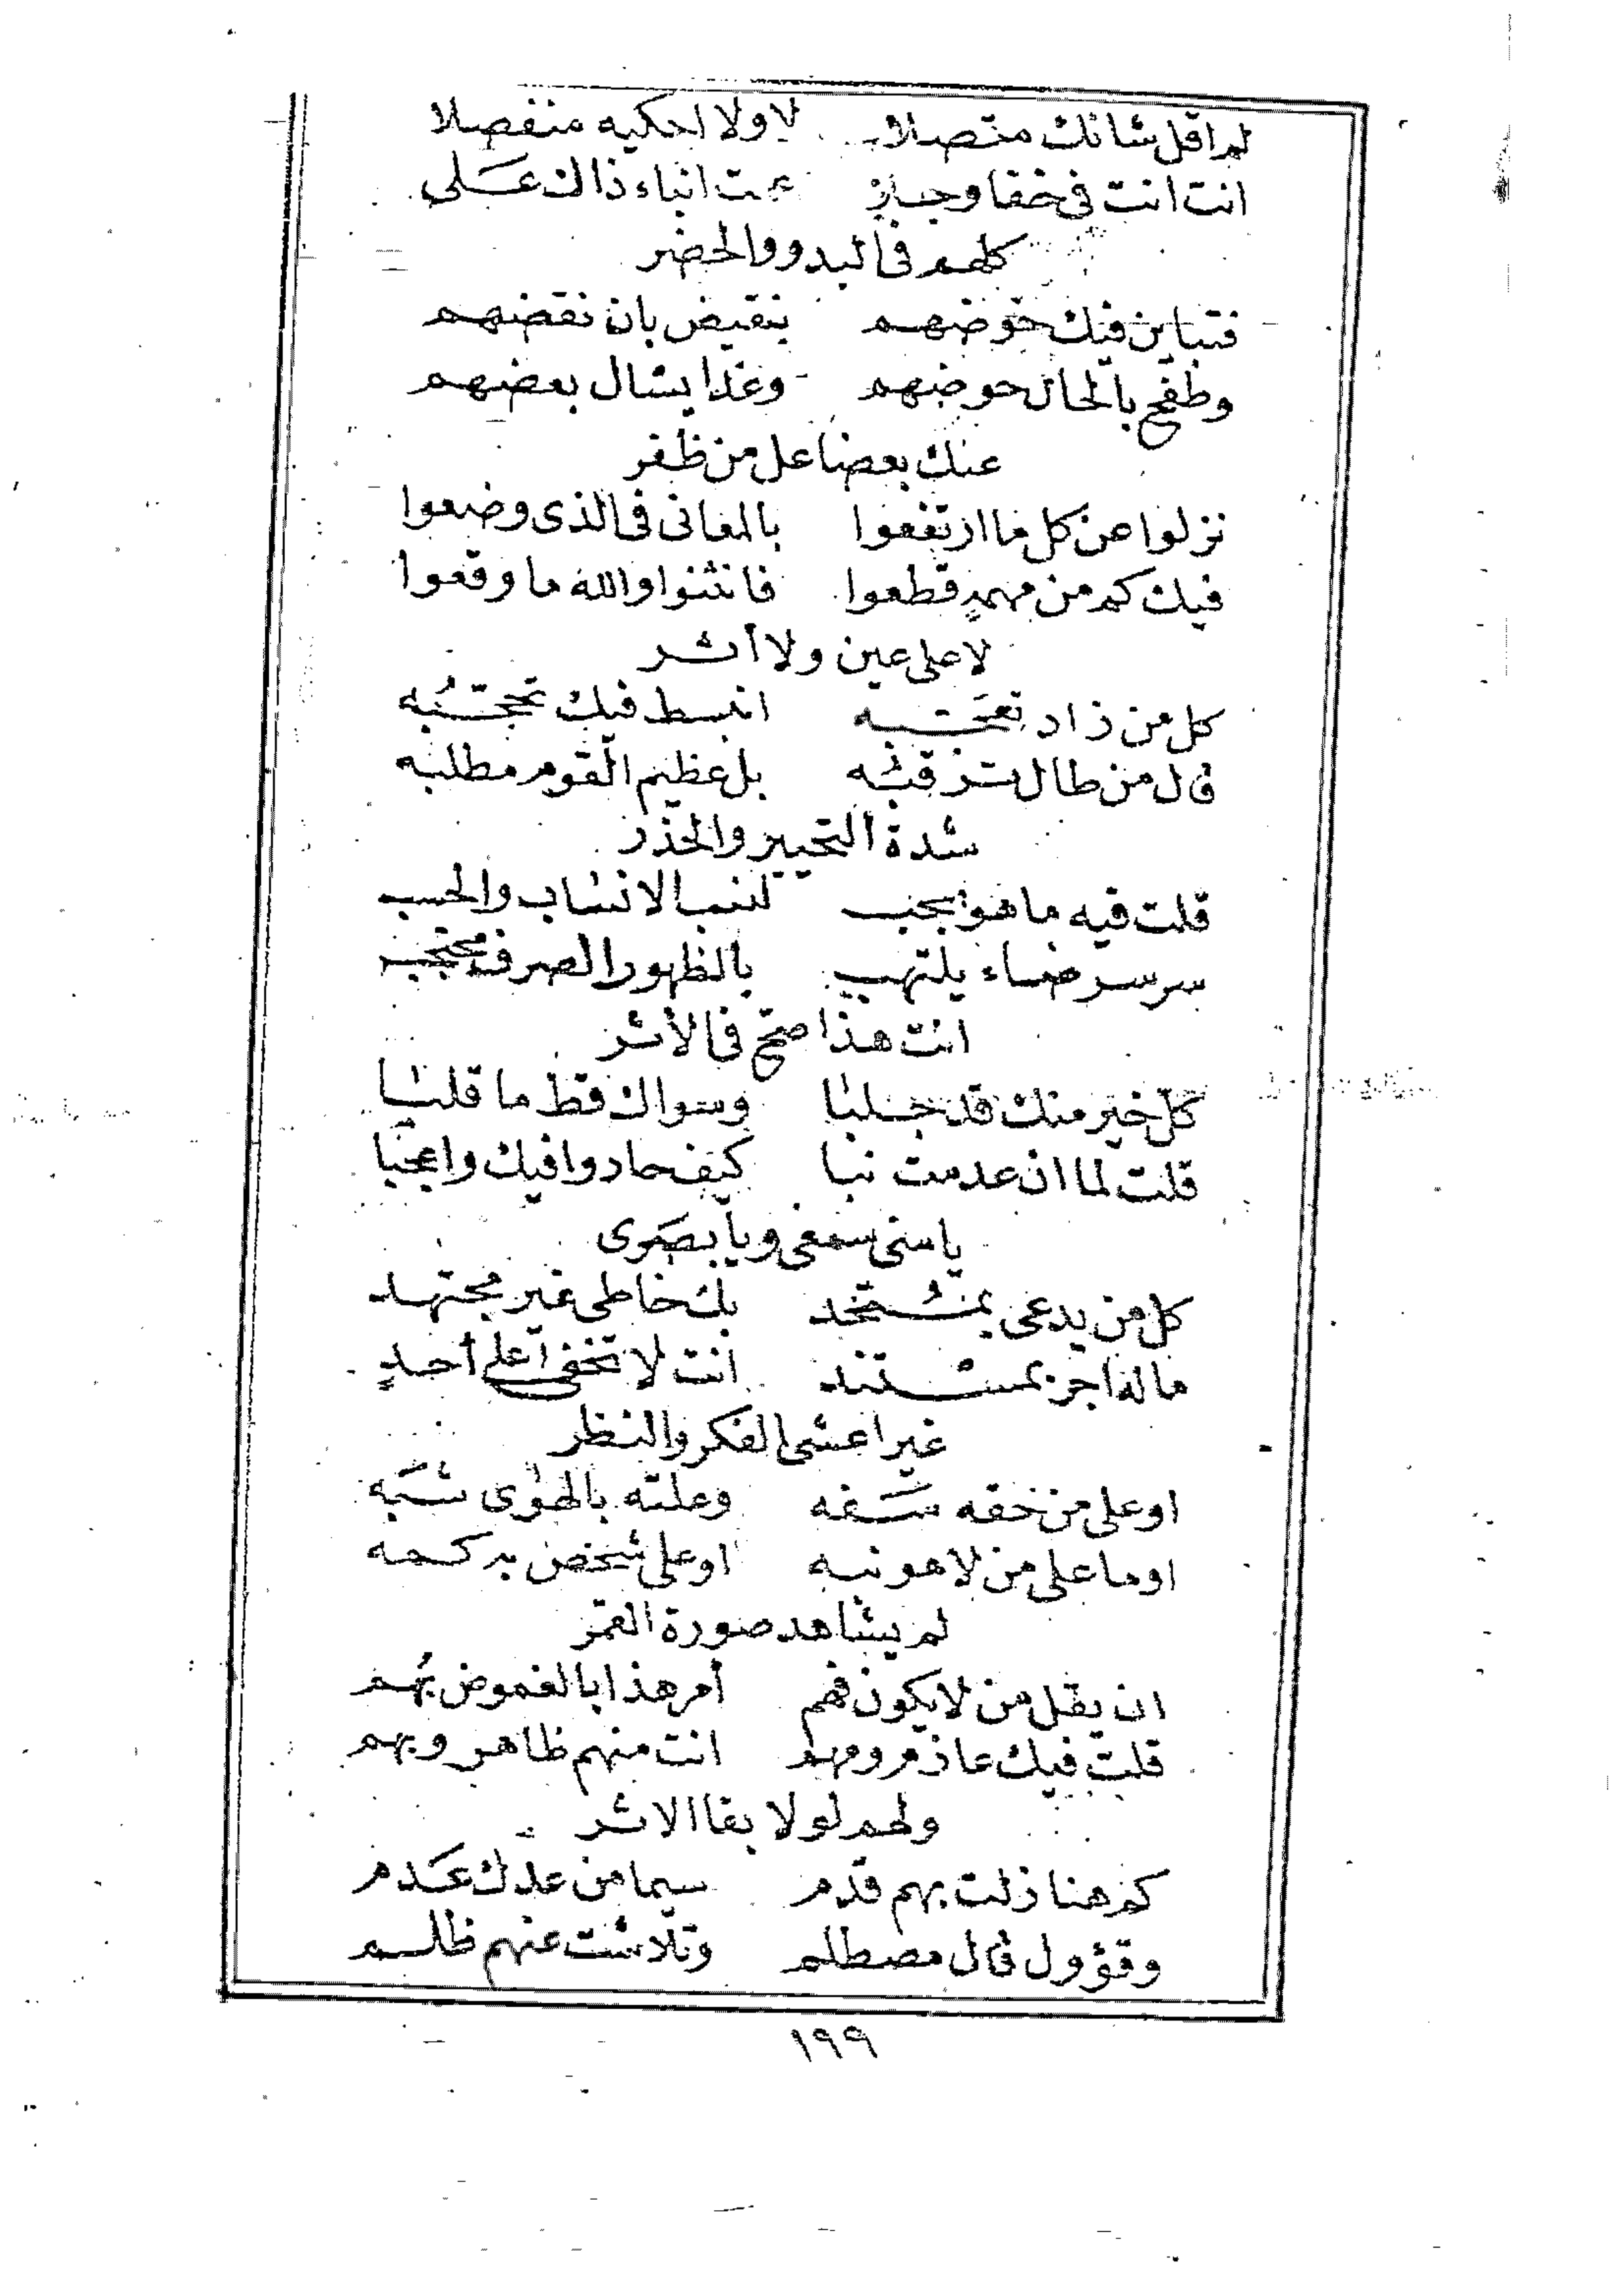 لم اقل شانك متصلا لا ولا احكيه منفصلا
انت انت فى خفا وجلا عمت انباء ذاك على
كلهم فى البدو والحضر
فتباين فيك خوضهم بنقيض بان نقضهم
وطفح بالحال حوضهم وغدا يسال بعضهم
عنك بعضا عل من ظفر
نزلوا عن كل ما ارتفعوا بالمعانى فى الذى وضعوا
فيك كم من مهمهٍ قطعوا فانثنوا والله ما وقعوا
لا على عين ولا أثر
كل من زاد تعجّبه انبسط فيك تحجّبُه
قال من طال ترقبه بل عظيم القوم مطلبه
شدة التحيير والحذر
قلت فيه ما هو يجب لنسب الانساب والحسب
سر سر ضاء يلتهب بالظهور الصرف محتجب
انت هذا صح فى الأثر
كل خير منك قد جلبا وسواك قط ما قلبا
قلت لما ان عدمت نبا كيف حادوا فيك واعجبا
يا سنى سمعى ويا بصرى
كل من يدعى بمنتخد بك خاطى غير مجتهد
ما له اجر بمستند انت لا تخفى على أحدٍ
غير اعشى الفكر والنظر
او على من خقه سفه وعلته بالهوى شبه
او ما على من لا هو نبه او على شخص به كمه
لم يشاهد صورة القمر
ان يقل من لا يكون فهم أمر هذا بالغموض بُهم
قلت فيك عاذم ومهم انت منهم ظاهر وبهم
ولهم لولا بقا الاثر
كم هنا زلت بهم قدم سيما من عدك عدم
وقؤول قال مصطلم وتلاشت عنهم ظلم
١٩٩